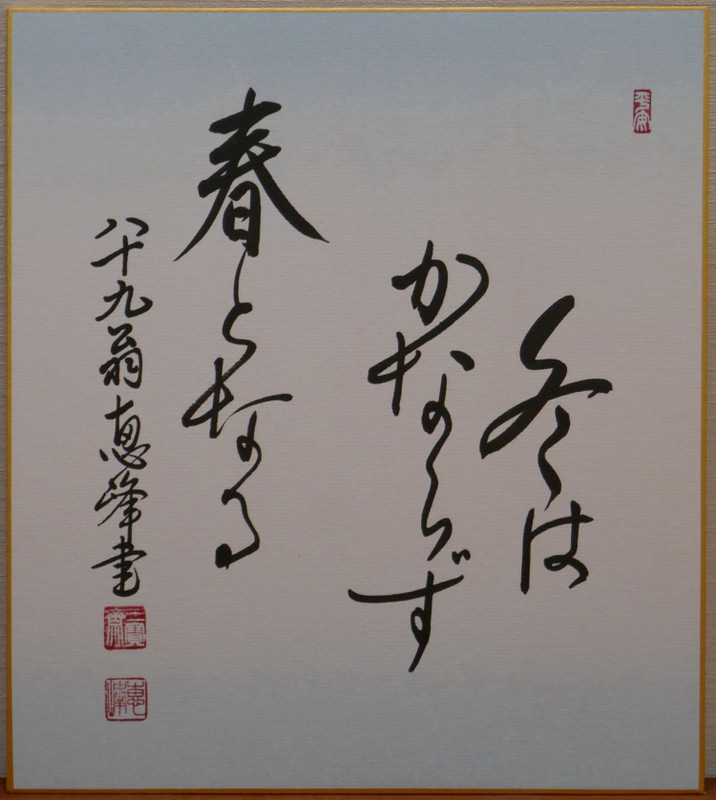 冬は
かならず
春となる
八十九翁恵峰書